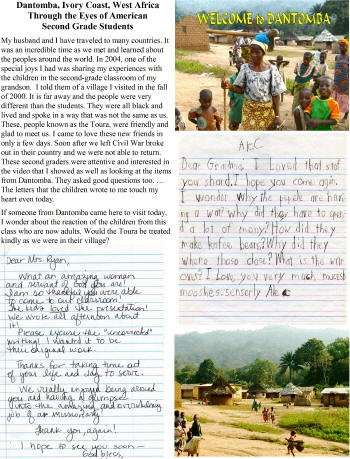 Dantomba, Ivory Coast, West Africa
Through the Eyes of American
Second Grade Students
My husband and I have traveled to many countries. It
was an incredible time as we met and learned about
the peoples around the world. In 2004, one of the
special joys I had was sharing my experiences with
the children in the second-grade classroom of my
grandson. I told them of a village I visited in the fall
of 2000. It is far away and the people were very
different than the students. They were all black and
lived and spoke in a way that was not the same as us.
These, people known as the Toura, were friendly and
glad to meet us. I came to love these new friends in
only a few days. Soon after we left Civil War broke
out in their country and we were not able to return.
These second graders were attentive and interested in
the video that I showed as well as looking at the items
from Dantomba. They asked good questions too. …
The letters that the children wrote to me touch my
heart even today.
If someone from Dantomba came here to visit today,
I wonder about the reaction of the children from this
class who are now adults. Would the Toura be treated
kindly as we were in their village?
Dear Mrs. Ryen,
What an amazing woman
and servant of God you are!
I am so thankful you were able
to come to our classroom!
The kids loved the presentation!
We wrote all afternoon about
it!
Please excuse the "uncorrected"
writing! I wanted it to be
their original work.
Thanks for taking time out
of your life and day to serve.
We really enjoyed being around
you and having a glimpse
into the amazing and overwhelming
job of a missionary!
Thank you, again!
I hope to see you soon—
God bless,
WELCOME to DANTOMBA
Alec
Dear Grading, I loved that stof
you shard. I hope you come agin.
I wonder Why the pepele are havi
ng a war? Why did they have to spend
a lot of mony? How did they
make kofee bears? Why did they
where those close? What is the war
over? I Love you very much, muest
mooshes. senserly Alec